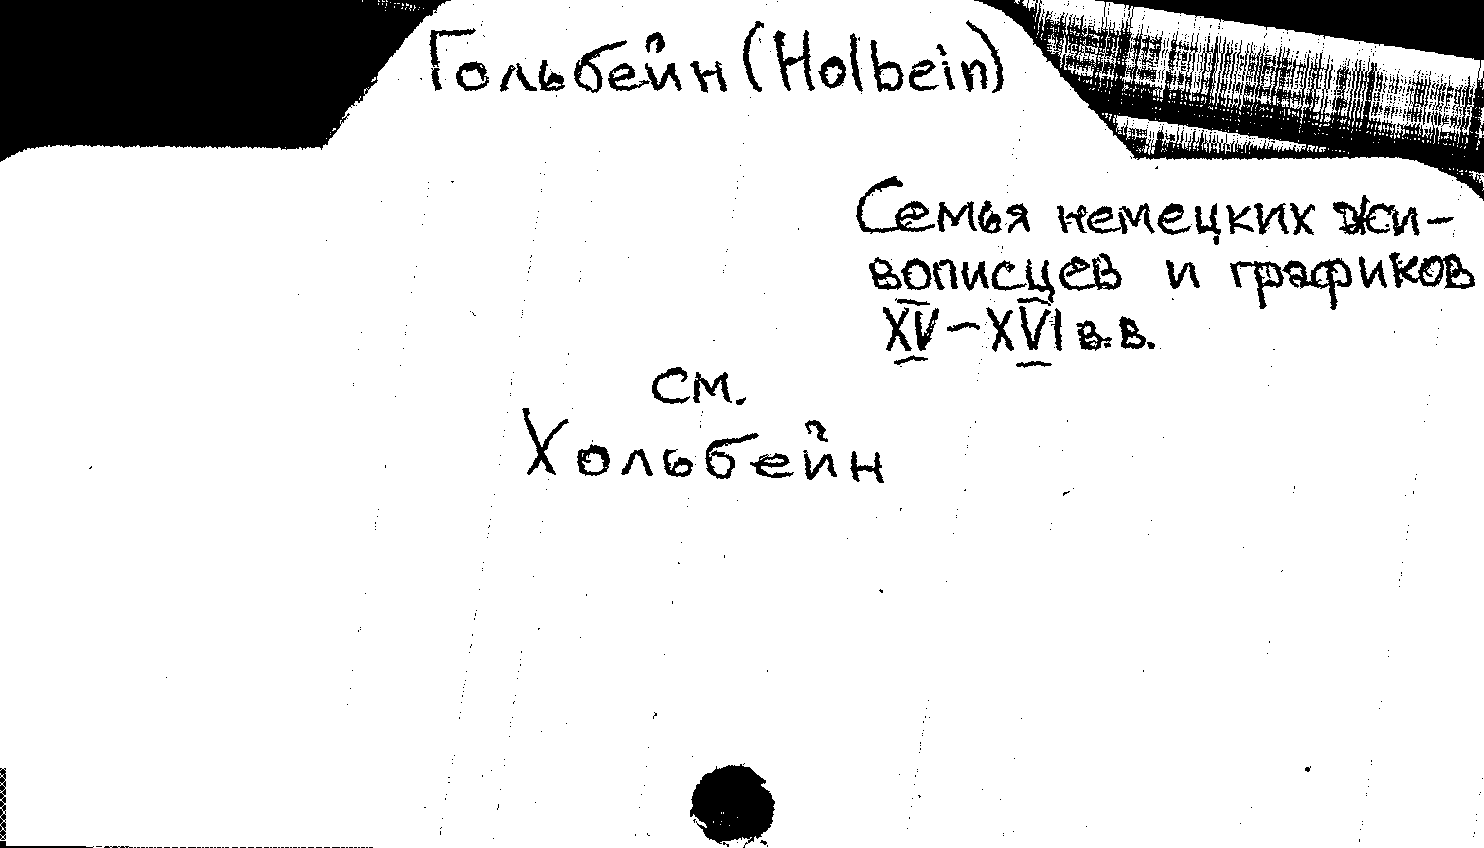 Гольбейн (Holbein)
Семья немецких жи-
вописцев и графиков
XV – XVI в.в.
см.
Хольбейн